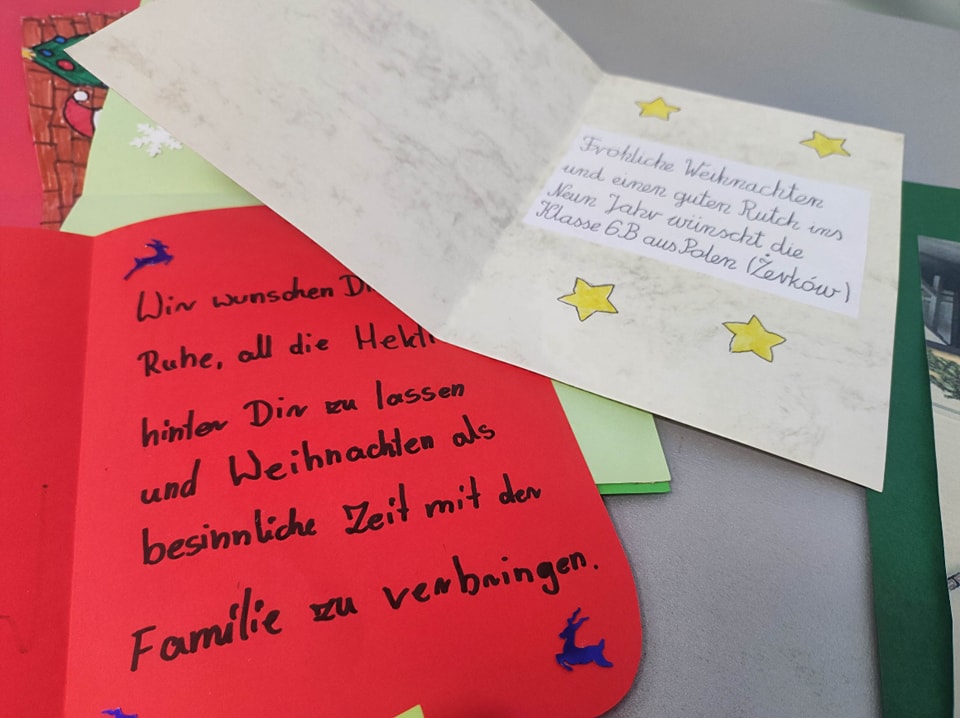 Fröhliche Weihnachten
und einen guten Rutch ins
Neun Jahr wünscht die
Klasse 6.B aus Polen (Żerków)
Wir wunschen
Ruhe, all die
hinter Dir zu lassen
und Weihnachten als
besinnliche Zeit mit der
Familie zu verbringen.